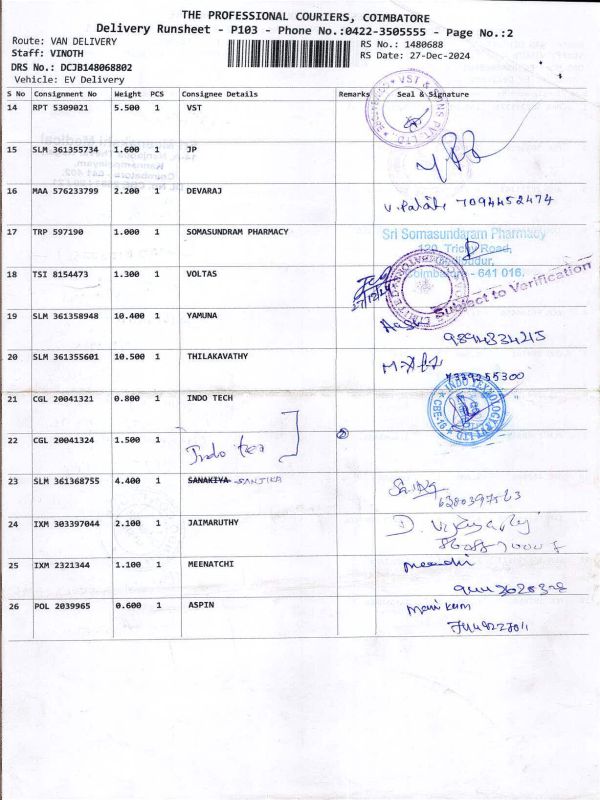 THE PROFESSIONAL COURIERS, COIMBATORE
Delivery Runsheet - P103 - Phone No.:0422-3505555 - Page No.:2
Route: VAN DELIVERY
Staff: VINOTH
DRS No.: DCJB148068802
Vehicle: EV Delivery
RS No.: 1480688
RS Date: 27-Dec-2024
S No Consignment No Weight PCS Consignee Details Remarks Seal & Signature
14 RPT 5309021 5.500 1 VST
15 SLM 361355734 1.600 1 JP
16 MAA 576233799 2.200 1 DEVARAJ 7094452474
17 TRP 597190 1.000 1 SOMASUNDRAM PHARMACY
Sri Somasundaram Pharmacy
Trichy Road,
Coimbatore - 641 016.
18 TSI 8154473 1.300 1 VOLTAS
Subject to Verification
19 SLM 361358948 10.400 1 YAMUNA
9894334215
20 SLM 361355601 10.500 1 THILAKAVATHY
7339255300
21 CGL 20041321 0.800 1 INDO TECH
22 CGL 20041324 1.500 1 Indo tec
23 SLM 361368755 4.400 1 SANAKIYA SANJIKA
24 IXM 303397044 2.100 1 JAIMARUTHY
25 IXM 2321344 1.100 1 MEENATCHI
26 POL 2039965 0.600 1 ASPIN